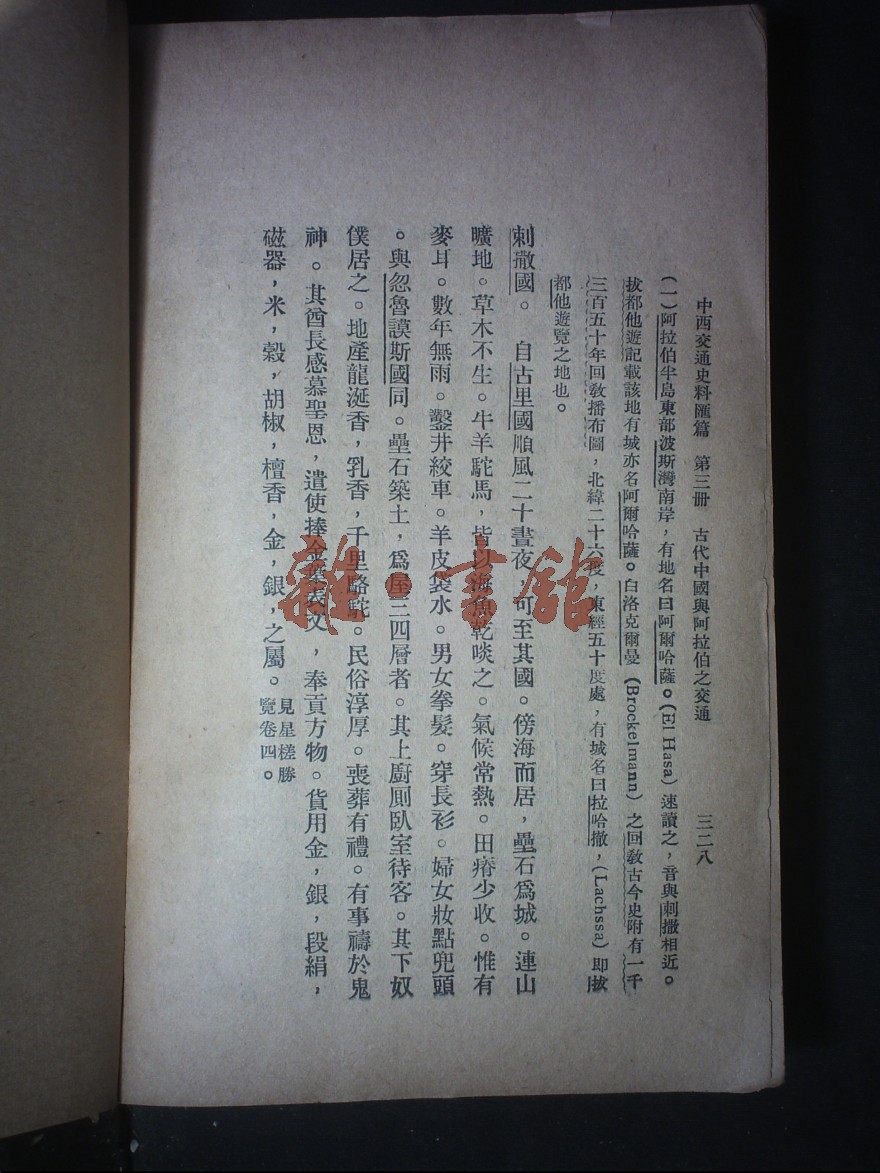 中西交通史料匯篇　第三册　古代中國與阿拉伯之交通　三二八
(一)阿拉伯半島東部波斯灣南岸，有地名曰阿爾哈薩。(El Hasa)速讀之，音與刺撒相近。
拔都他遊記載該地有城亦名阿爾哈薩。白洛克爾曼(Brockelmann)之回敎古今史附有一千
三百五十年回敎播布圖，北緯二十六度，東經五十度處，有城名曰拉哈撤，(Lachssa)即拔
都他遊覽之地也。
刺撒國。　自古里國順風二十晝夜　可至其國。傍海而居，壘石爲城。連山
曠地。草木不生。牛羊駝馬，皆以海魚乾啖之。氣候常熱。田瘠少收。惟有
麥耳。數年無雨。鑿井絞車。羊皮袋水。男女拳髮。穿長衫。婦女妝點兜頭
。與忽魯謨斯國同。壘石築土，爲屋三四層者。其上廚厠臥室待客。其下奴
僕居之。地產龍涎香，乳香，千里駱駝。民俗淳厚。喪葬有禮。有事禱於鬼
神。其酋長感慕聖恩，遣使捧金葉表文，奉貢方物。貨用金，銀，段絹，
磁器，米，穀，胡椒，檀香，金，銀，之屬。見星槎勝
覽卷四。
雜·書舘